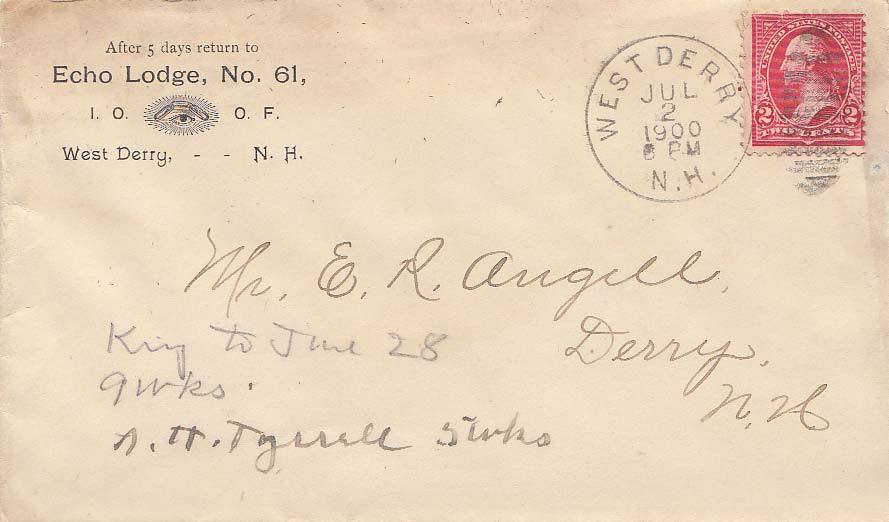 After 5 days return to
Echo Lodge, No. 61,
I. O. O. F.
West Derry, - - N. H.
WEST DERRY
JUL
2
1900
8 PM
N.H.
UNITED STATES POSTAGE
2 2
Mr. E. R. Angell,
Derry,
N. H
King to June 28
9 wks.
A. H. Tyrrell 5 wks